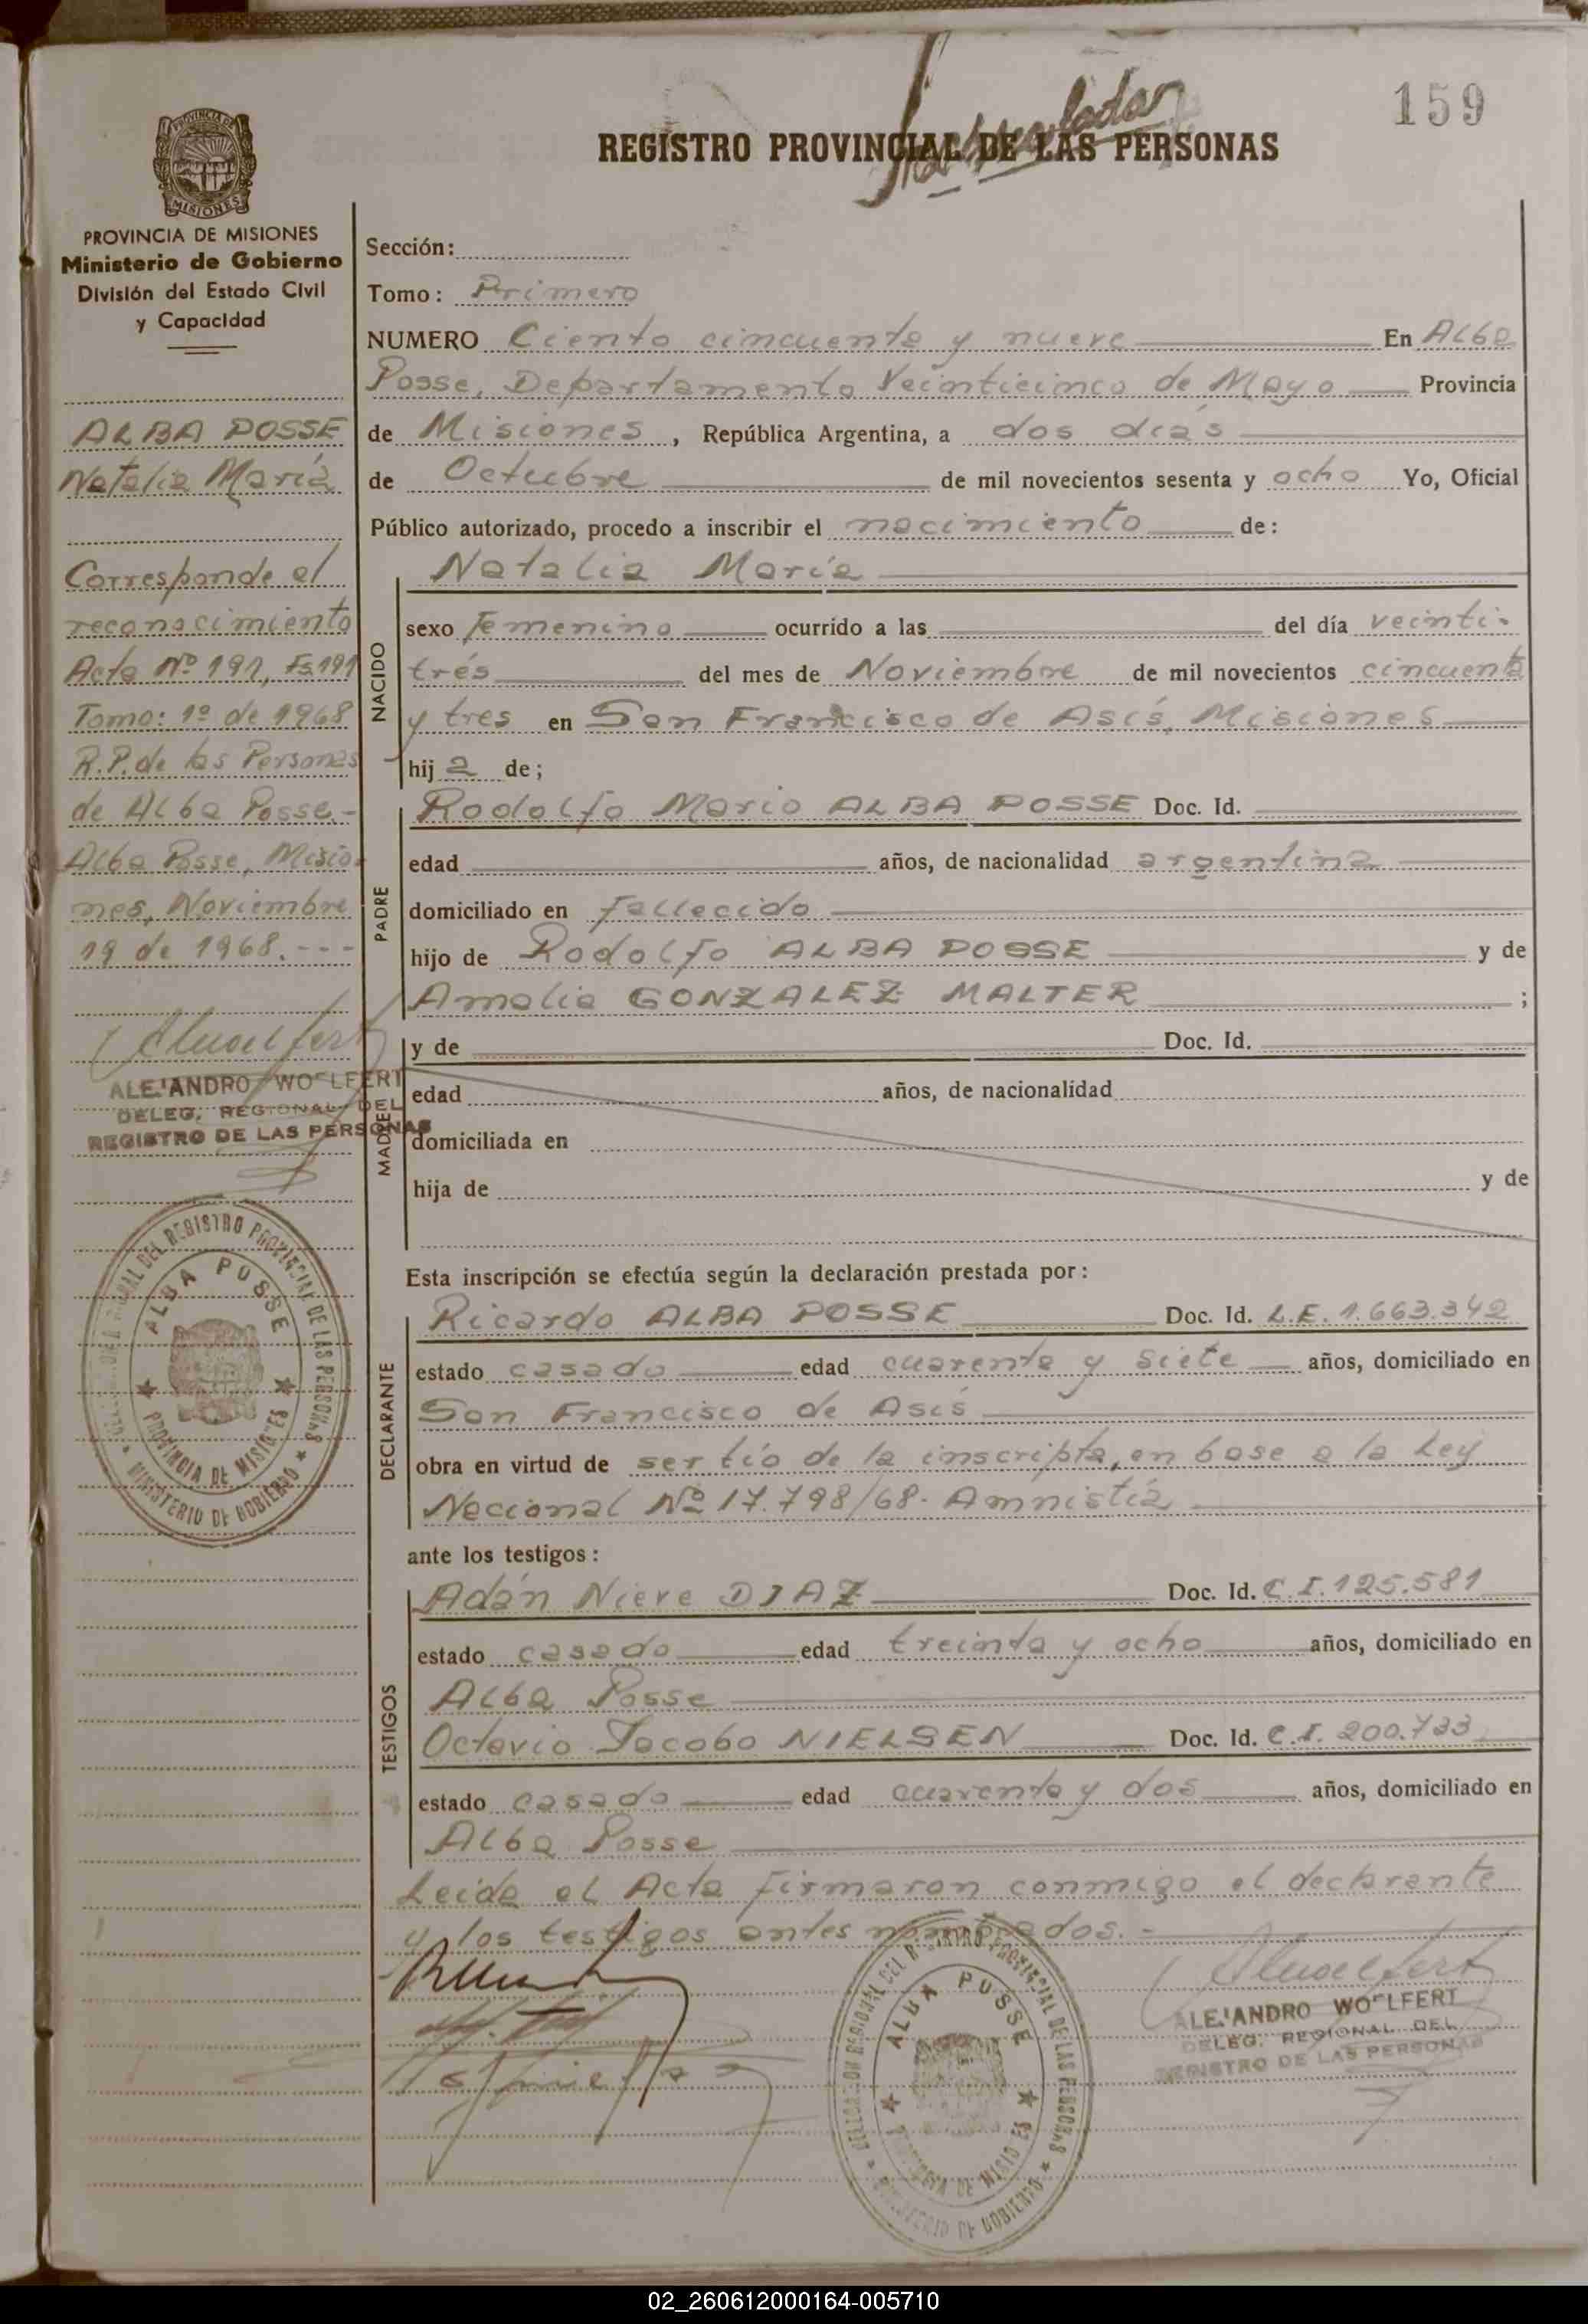 159
REGISTRO PROVINCIAL DE LAS PERSONAS
PROVINCIA DE MISIONES
MISIONES
PROVINCIA DE MISIONES
Ministerio de Gobierno
División del Estado Civil
y Capacidad
ALBA POSSE
Natalia María
Corresponde el
reconocimiento
Acta Nº 191, Fs 191
Tomo: 1º de 1968
R.P. de las Personas
de Alba Posse.-
Alba Posse, Misio-
nes, Noviembre
19 de 1968. ---
ALEJANDRO WOLFERT
DELEG. REGIONAL DEL
REGISTRO DE LAS PERSONAS
DELEGACION REGIONAL DEL REGISTRO PROVINCIAL DE LAS PERSONAS
ALBA POSSE
PROVINCIA DE MISIONES
MINISTERIO DE GOBIERNO
Sección:
Tomo: Primero
NUMERO Ciento cincuenta y nueve En Alba
Posse, Departamento Veinticinco de Mayo Provincia
de Misiones, República Argentina, a dos días
de Octubre de mil novecientos sesenta y ocho Yo, Oficial
Público autorizado, procedo a inscribir el nacimiento de:
Natalia María
NACIDO
sexo femenino ocurrido a las del día veinti-
trés del mes de Noviembre de mil novecientos cincuenta
y tres en San Francisco de Asís, Misiones
hij a de;
PADRE
Rodolfo Mario ALBA POSSE Doc. Id.
edad años, de nacionalidad argentina
domiciliado en fallecido
hijo de Rodolfo ALBA POSSE y de
Amalia GONZALEZ MALTER ;
MADRE
y de Doc. Id.
edad años, de nacionalidad
domiciliada en
hija de y de
Esta inscripción se efectúa según la declaración prestada por:
DECLARANTE
Ricardo ALBA POSSE Doc. Id. L.E. 1.663.342
estado casado edad cuarenta y siete años, domiciliado en
San Francisco de Asís
obra en virtud de ser tío de la inscripta, en base a la Ley
Nacional Nº 17.798/68- Amnistía
ante los testigos:
TESTIGOS
Adán Nieve DIAZ Doc. Id. C.I. 125.581
estado casado edad treinta y ocho años, domiciliado en
Alba Posse
Octavio Jacobo NIELSEN Doc. Id. C.I. 200.733
estado casado edad cuarenta y dos años, domiciliado en
Alba Posse
Leida el Acta firmaron conmigo el declarante
y los testigos antes nombrados.-
DELEGACION REGIONAL DEL REGISTRO PROVINCIAL DE LAS PERSONAS
ALBA POSSE
PROVINCIA DE MISIONES
MINISTERIO DE GOBIERNO
ALEJANDRO WOLFERT
DELEG. REGIONAL DEL
REGISTRO DE LAS PERSONAS
02_260612000164-005710